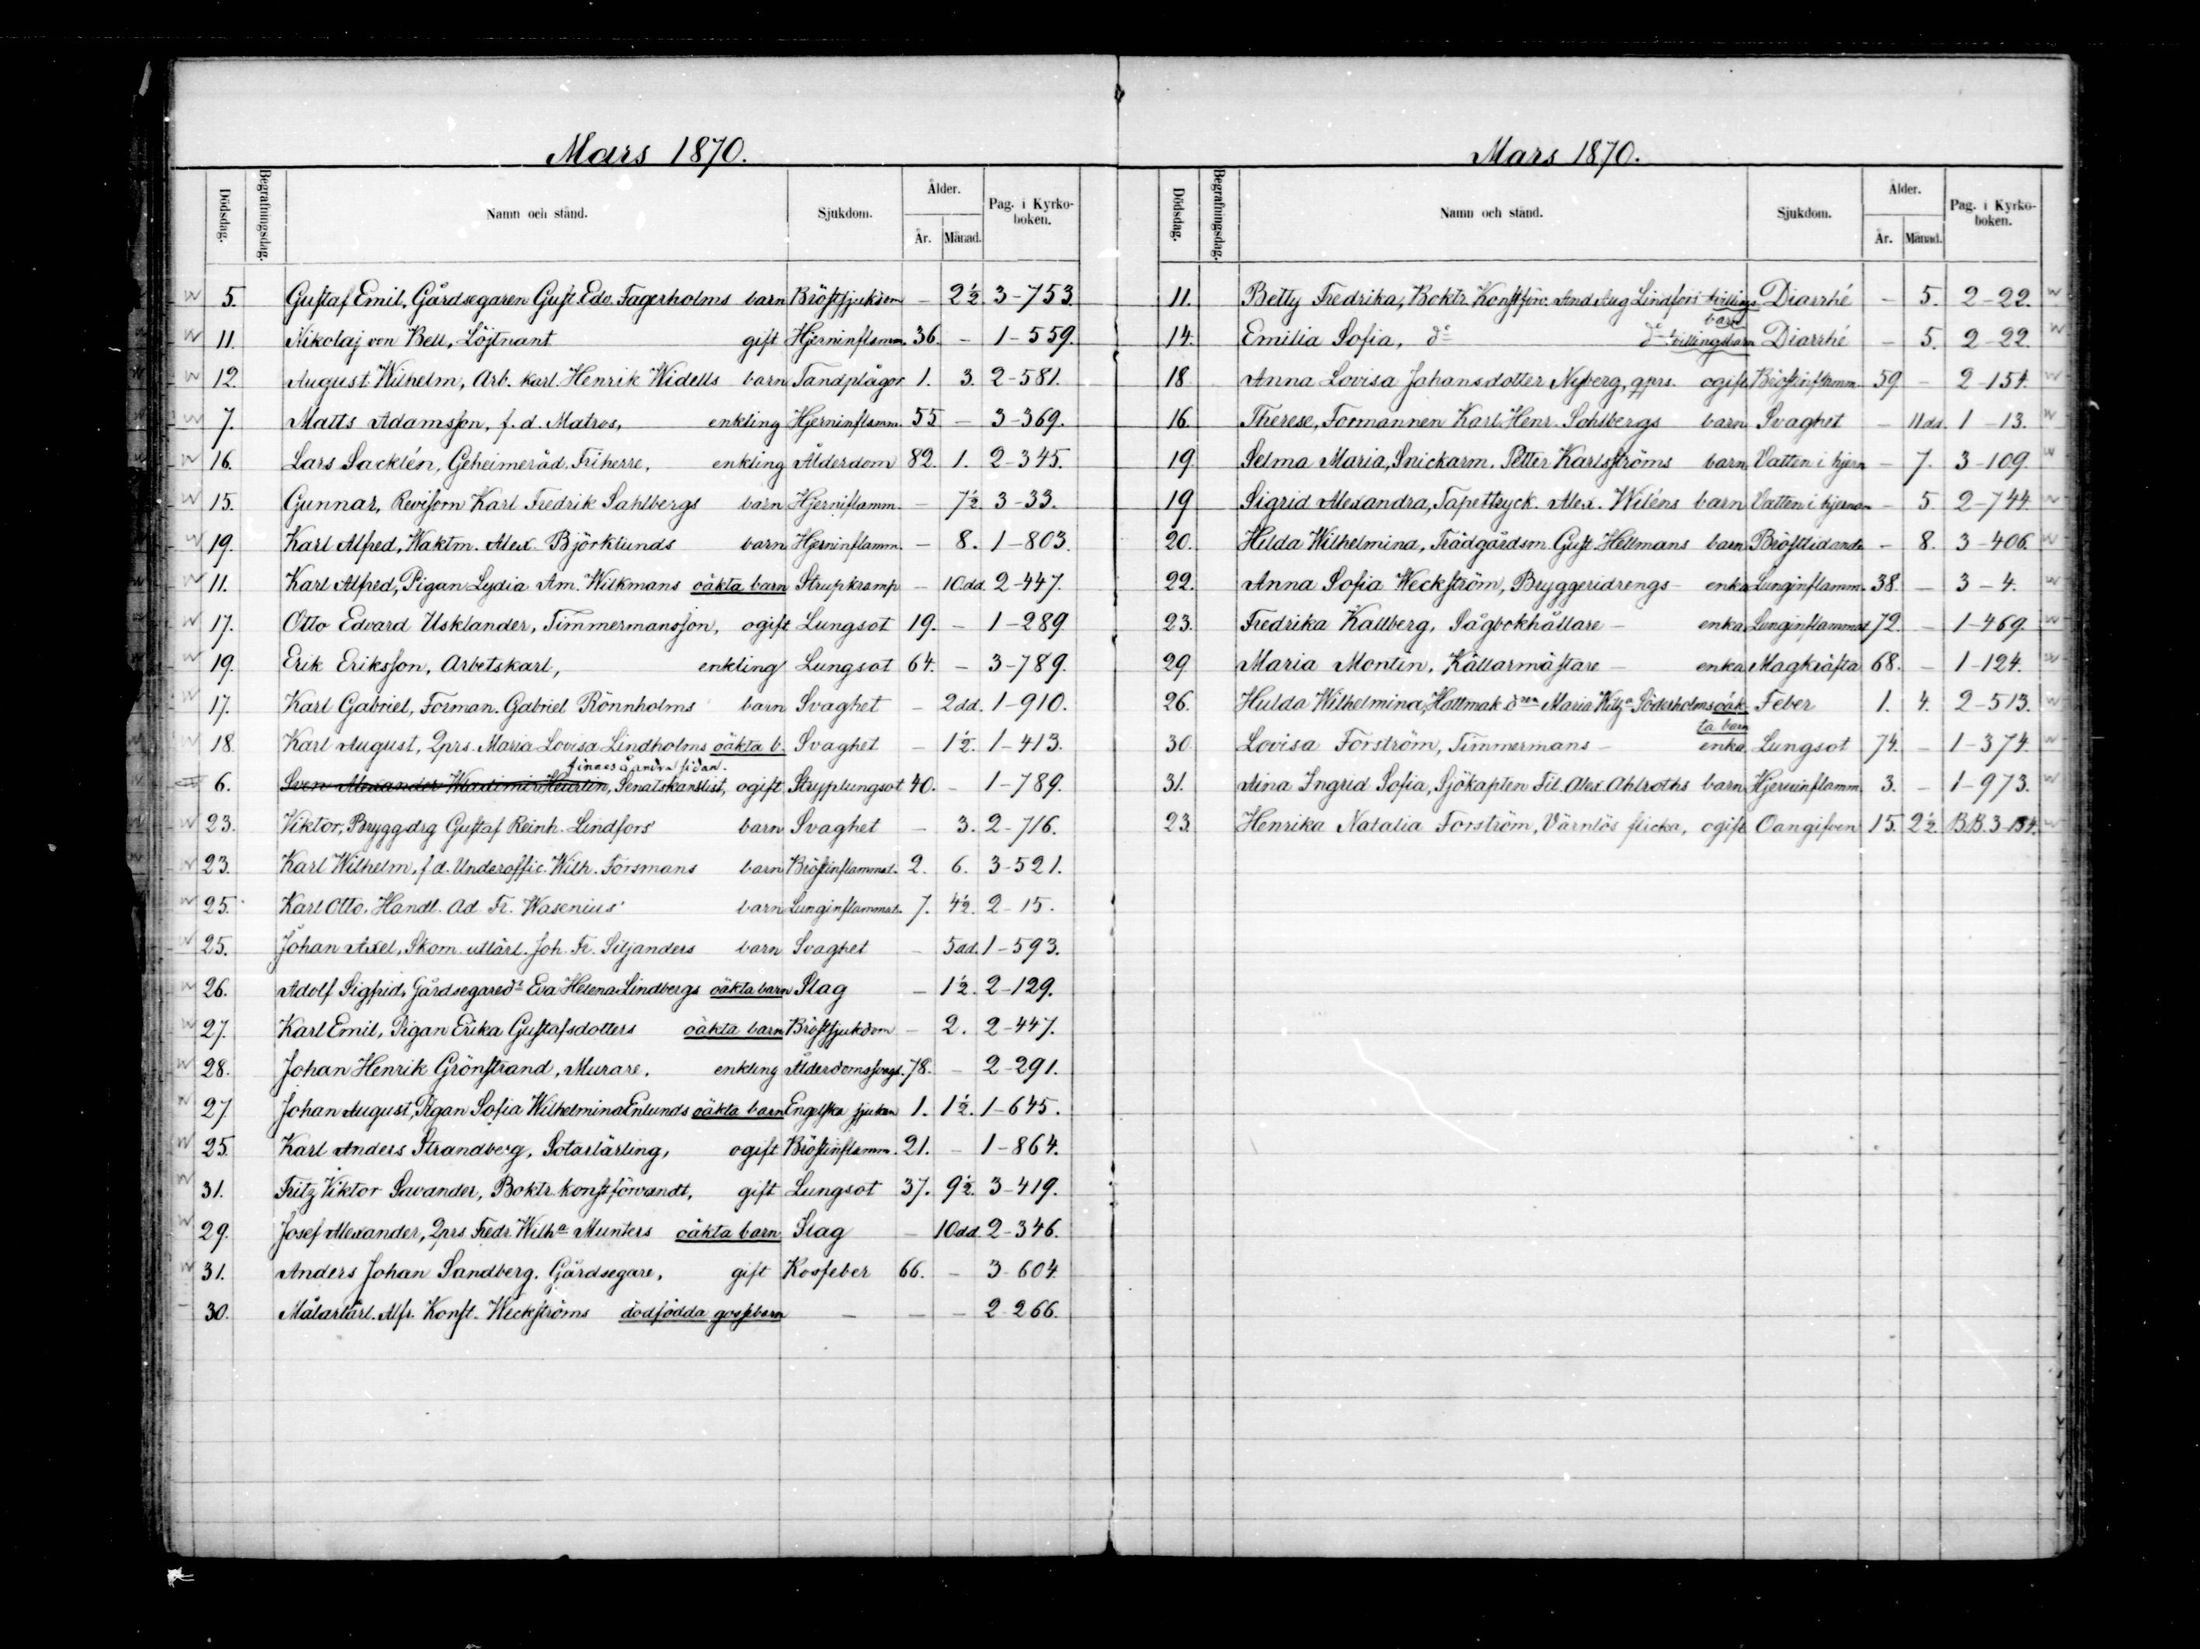 Mars 1870.
Dödsdag. Begrafningsdag. Namn och stånd. Sjukdom. Ålder. År. Månad. Pag. i Kyrko-boken.
5. Gustaf Emil, Gårdsegaren Gust. Edv. Fagerholms barn Bröstsjukdom - 2½ 3-753.
11. Nikolaj von Bell, Löjtnant gift Hjerninflamm. 36. - 1-559.
12. August Wilhelm, Arb. karl. Henrik Widells barn Tandplågor 1. 3. 2-581.
7. Matts Adamsson, f. d. Matros, enkling Hjerninflamm. 55 - 3-369.
16. Lars Sacklén, Geheimeråd, Friherre, enkling Ålderdom 82. 1. 2-345.
15. Gunnar, Revisorn Karl Fredrik Sahlbergs barn Hjerniflamm. - 7½ 3-33.
19. Karl Alfred, Waktm. Alex. Björklunds barn Hjerninflamm. - 8. 1-803.
11. Karl Alfred, Pigan Lydia Am. Wilkmans oäkta barn Strupkramp - 10.dd. 2-447.
17. Otto Edvard Usklander, Timmermansson, ogift Lungsot 19. - 1-289
19. Erik Eriksson, Arbetskarl, enkling Lungsot 64. - 3-789.
17. Karl Gabriel, Forman. Gabriel Rönnholms barn Svaghet - 2dd. 1-910.
18. Karl August, Qprs. Maria Lovisa Lindholms oäkta b. Svaghet - 1½. 1-413.
finnes å andra sidan.
6. Sven Alexander Wladimir Heurlin, Senatskanslist, ogift Stryplungsot 40. - 1-789.
23. Viktor, Bryggdrg Gustaf Reinh. Lindfors' barn Svaghet - 3. 2-716.
23. Karl Wilhelm, f d. Underoffic. Wilh. Forsmans barn Bröstinflammat. 2. 6. 3-521.
25. Karl Otto, Handl. Ad. Fr. Wasenius' barn Lunginflammat. 7. 4½. 2-15.
25. Johan Axel, Skom. utlärl. Joh. Fr. Siljanders barn Svaghet - 5dd. 1-593.
26. Adolf Sigfrid, Gårdsegared:r Eva Helena Lindbergs oäkta barn Slag - 1½. 2-129.
27. Karl Emil, Pigan Erika Gustafsdotters oäkta barn Bröstsjukdom - 2. 2-447.
28. Johan Henrik Grönstrand, Murare, enkling Ålderdomssvagh. 78. - 2-291.
27. Johan August, Pigan Sofia Wilhelmina Enlunds oäkta barn Engelska sjukan 1. 1½. 1-645.
25. Karl Anders Strandberg, Sotarlärling, ogift Bröstinflamm. 21. - 1-864.
31. Fritz Viktor Savander, Boktr. konstförvandt, gift Lungsot 37. 9½. 3-419.
29. Josef Alexander, Qprs. Fredr. Wilh:a Munters oäkta barn Slag - 10dd. 2-346.
31. Anders Johan Sandberg, Gårdsegare, gift Rosfeber 66. - 3-604.
30. Målarlärl. Alfr. Konst. Weckströms dödfödda gossbarn - - - 2-266.
Mars 1870.
Dödsdag. Begrafningsdag. Namn och stånd. Sjukdom. Ålder. År. Månad. Pag. i Kyrko-boken.
11. Betty Fredrika, Boktr. Konstförv. And Aug Lindfors' tvillings Diarrhé - 5. 2-22.
barn
14. Emilia Sofia, d:o d:o tvillingsbarn Diarrhé - 5. 2-22.
18. Anna Lovisa Johansdotter Nyberg, qprs. ogift Bröstinflamm. 59 - 2-154.
16. Therese, Formannen Karl Henr. Sahlbergs barn Svaghet - 11dd. 1-13.
19. Selma Maria, Snickarm. Petter Karlströms barn Vatten i hjern - 7. 3-109.
19 Sigrid Alexandra, Tapettryck. Alex. Wiléns barn Vatten i hjernan - 5. 2-744.
20. Hilda Wilhelmina, Trädgårdsm. Gust. Hellmans barn Bröstlidande - 8. 3-406.
22. Anna Sofia Weckström, Bryggeridrengs- enka Lunginflamm. 38. - 3-4.
23. Fredrika Kallberg, Sågbokhållare - enka Lunginflammat 72. - 1-469.
29. Maria Montin, Källarmästare - enka Magkräfta 68. - 1-124.
26. Hulda Wilhelmina, Hattmak. d:ren Maria Wilh:a Söderholms oäk- Feber 1. 4. 2-513.
ta barn
30. Lovisa Forström, Timmermans- enka Lungsot 74. - 1-374.
31. Aina Ingrid Sofia, Sjökapten Fil. Alex. Ahlroths barn Hjerninflamm. 3. - 1-973.
23. Henrika Natalia Forström, Värnlös flicka, ogift Oangifven 15. 2½ B.B. 3-134.